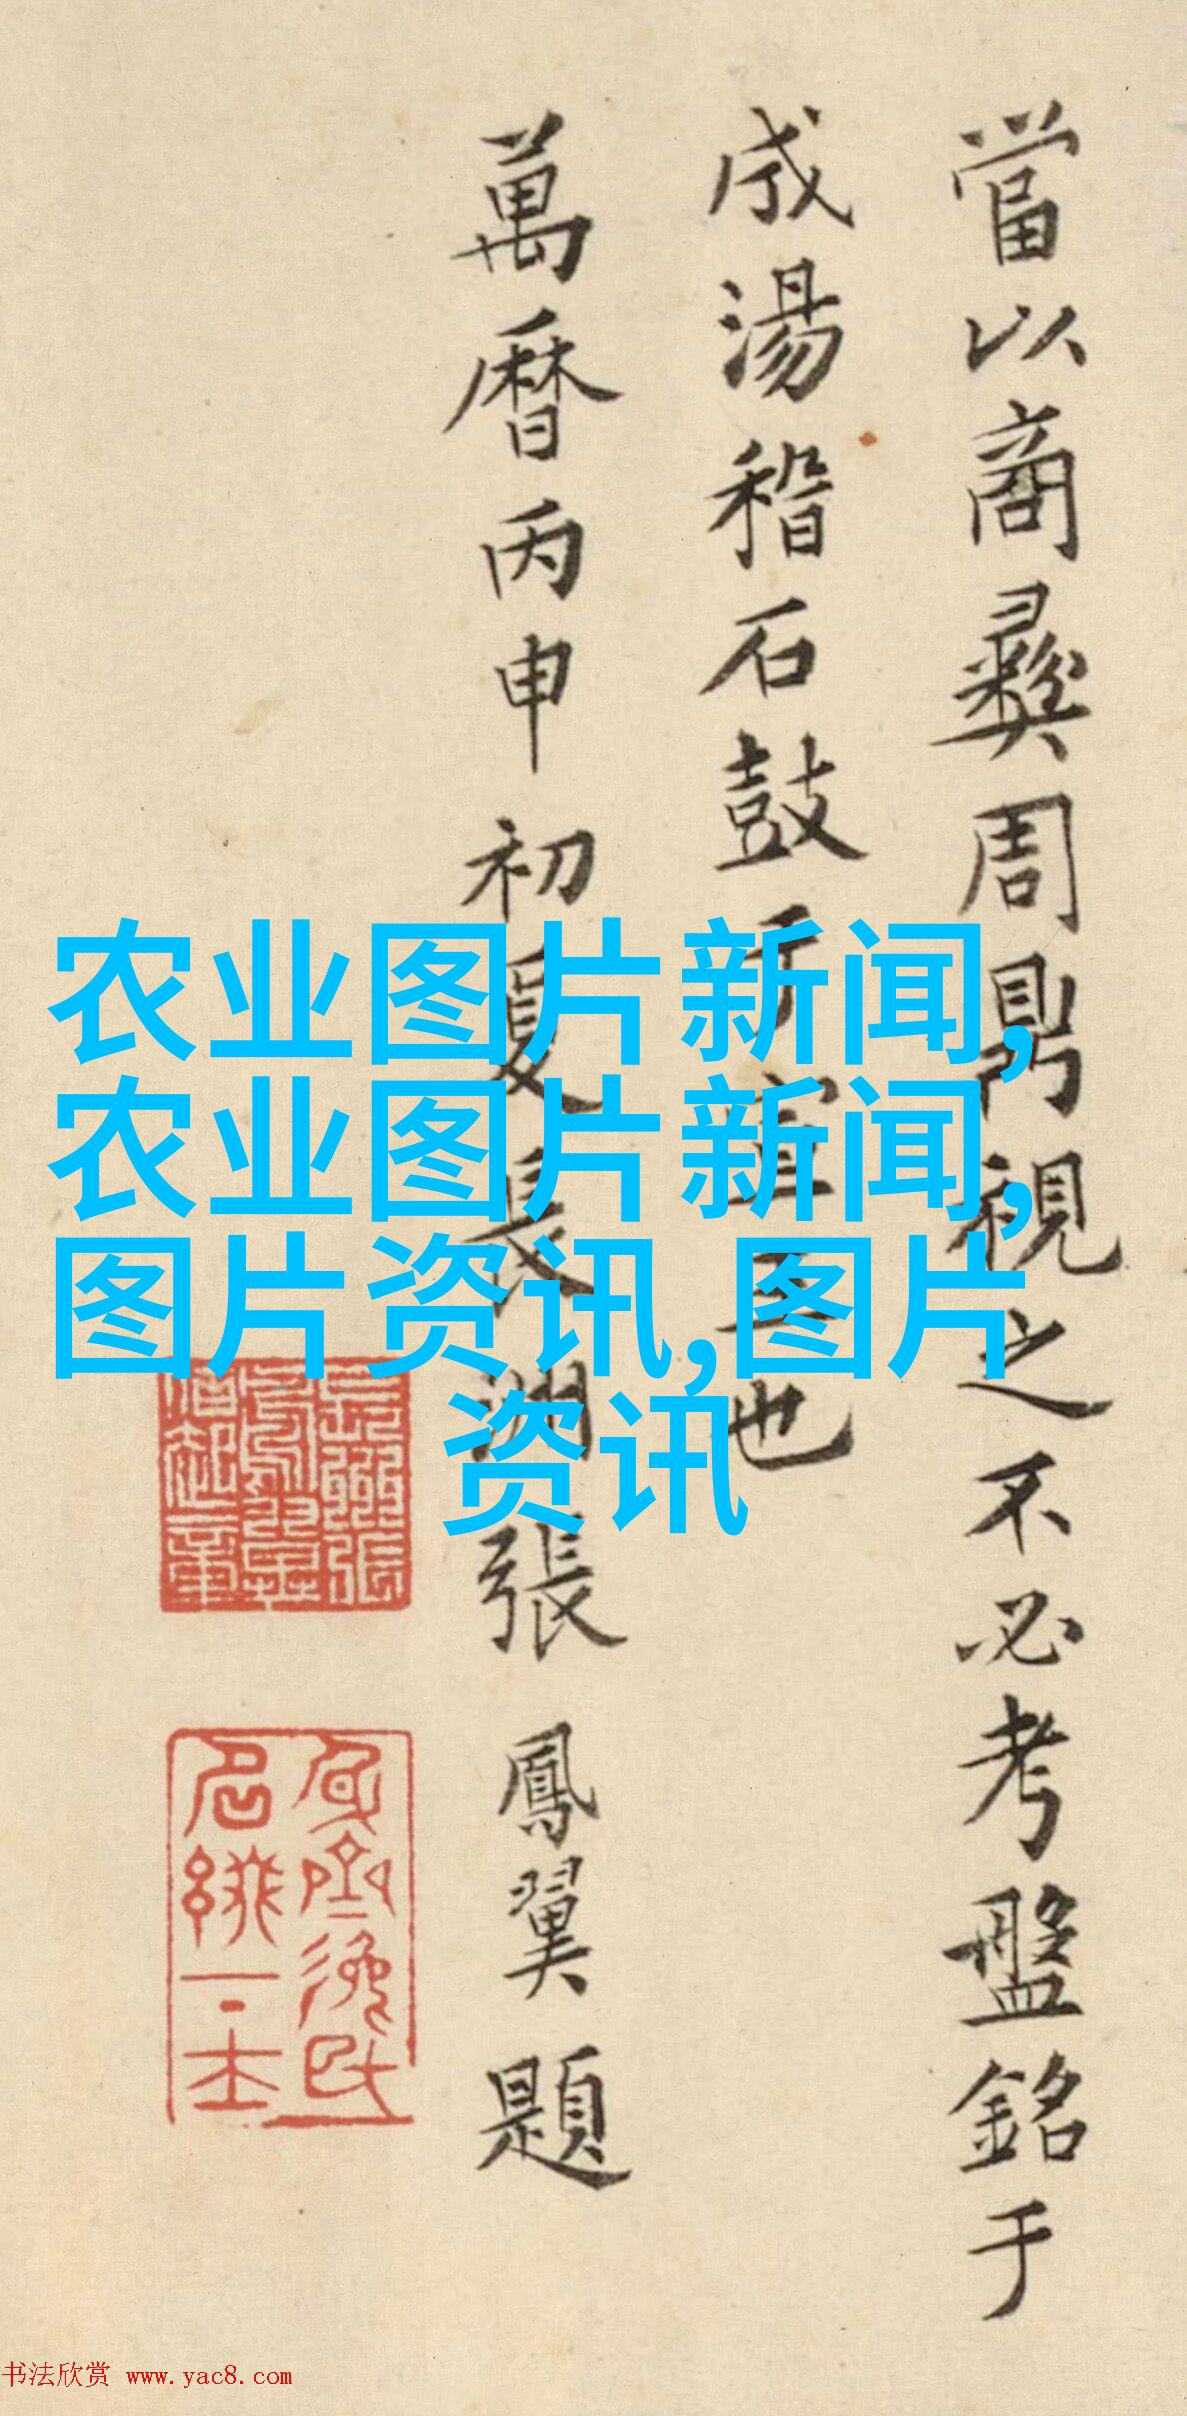 當以商彞周鼎視之不必考盤銘于
成湯稽石鼓于宣王也
萬曆丙申初夏長洲張鳳翼題
农业图片新闻,
农业图片新闻,
图片资讯,图片
资讯
书法欣赏 www.yac8.com